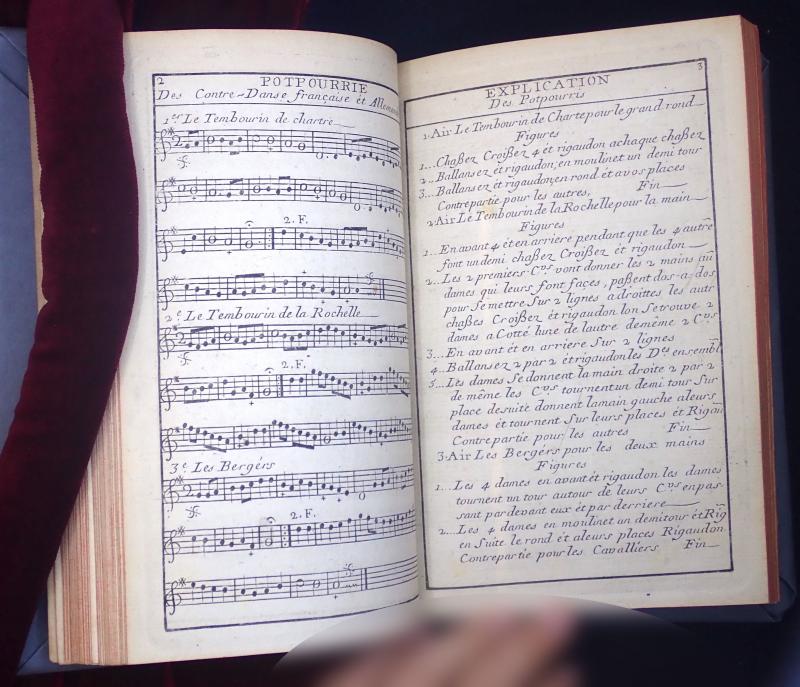 2
POTPOURRIE
Des Contre=Danse française et Allemande
1er Le Tembourin de chartre
2. F.
2e Le Tembourin de la Rochelle
2. F.
3e Les Bergérs
2. F.
3
EXPLICATION
Des Potpourris
1. Air Le Tembourin de Charte pour le grand rond
Figures
1... Chaßez Croißez 4 ét rigaudon achaque chaßez
2.. Ballansez ét rigaudon, en moulinet un demi tour
3... Ballansez ét rigaudon, en rond ét avos places
Contrepartie pour les autres, Fin
2. Air Le Tembourin de la Rochelle pour la main
Figures
1... En avant 4 ét en arriere pendant que les 4 autre
font un demi chaßez Croißez ét rigaudon
2... Les 2 premiers C.ers vont donner les 2 mains
dames qui leurs font faces, paßent dos-a-dos
pour se mettre Sur 2 lignes adroittes les autr
chaßes Croißez ét rigaudon lon Se trouve 2
dames a Cotté lune de lautre demême 2 C.ers
3... En avant ét en arriere Sur 2 lignes
4.. Ballansez 2 par 2 ét rigaudon les Des ensembl
5... Les dames Se donnent la main droite 2 par 2
de même les C.ers tournent un demi tour Sur
place desuite donnent lamain gauche aleurs
dames ét tournent Sur leurs places ét Rigau
Contre partie pour les autres Fin
3. Air Les Bergérs pour les deux mains
Figures
1... Les 4 dames en avant ét rigaudon les dames
tournent un tour autour de leurs C.ers en pas-
sant par devant eux ét par derriere
2... Les 4 dames en moulinet un demi tour ét Rig
en Suite le rond ét aleurs places Rigaudon
Contrepartie pour les Cavalliers Fin